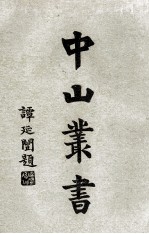 中山叢書
譚延闓題